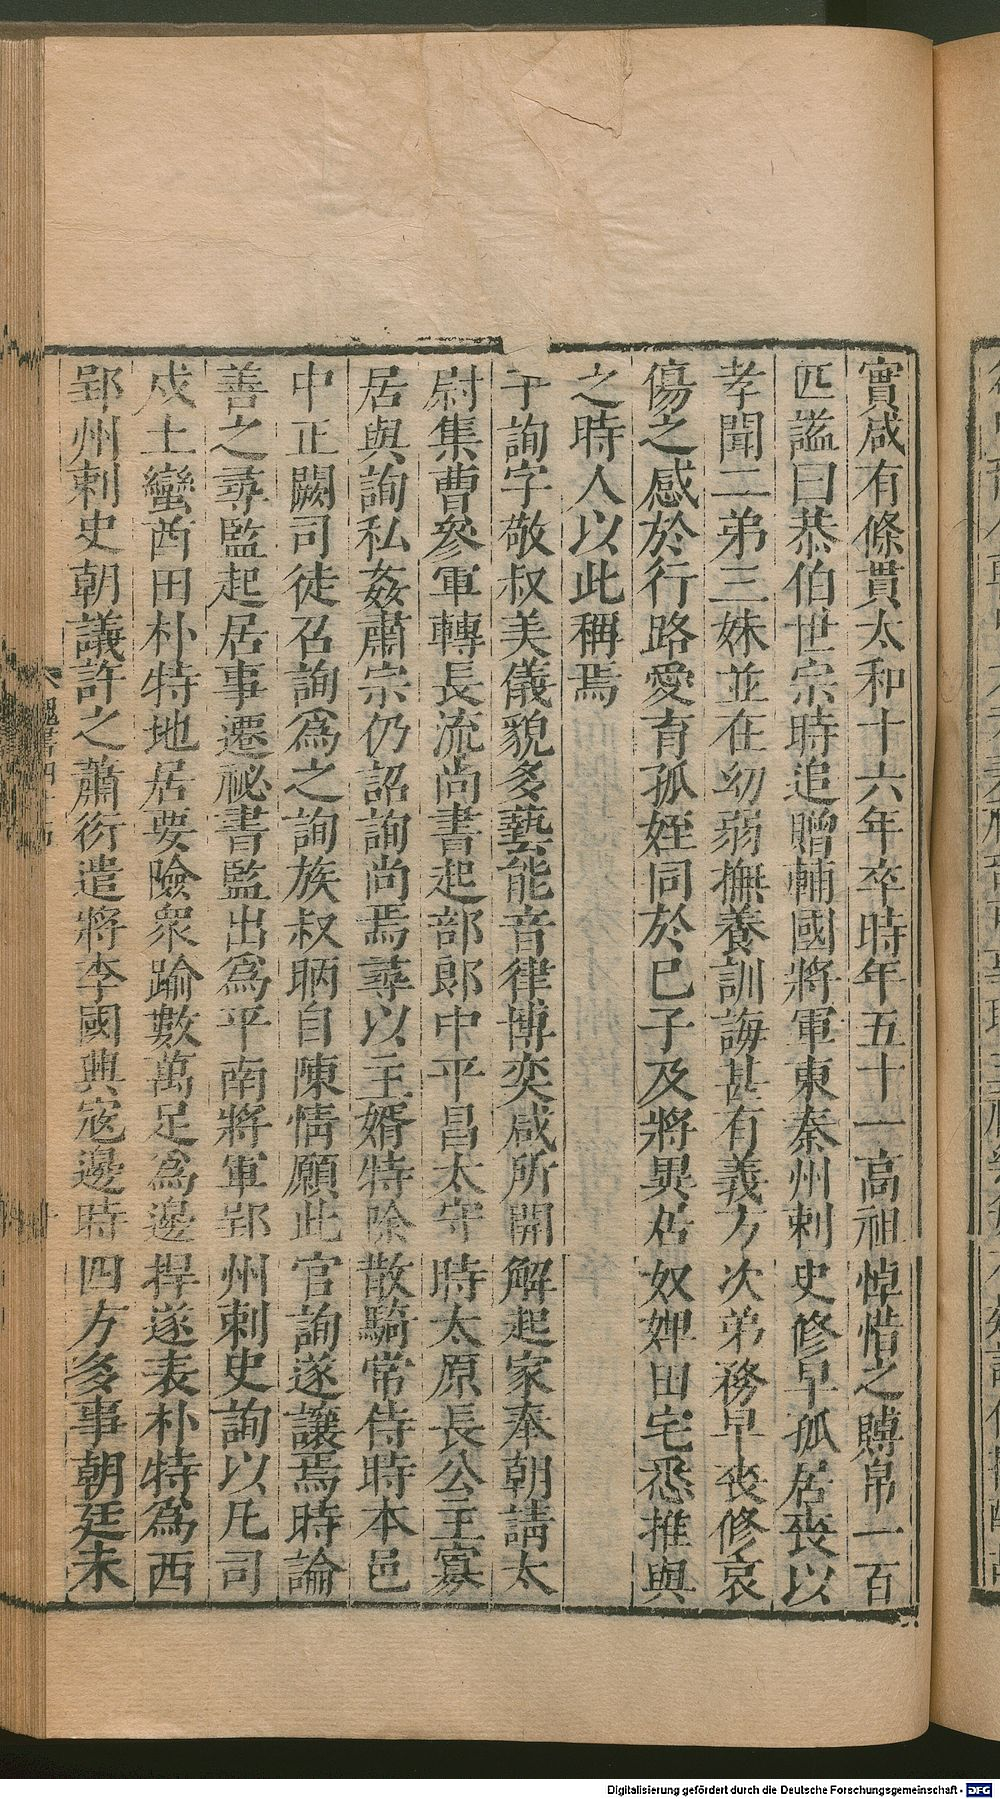 實咸有條貫太和十六年卒時年五十一高祖悼惜之賻帛一百
匹謚曰恭伯世宗時追贈輔國將軍東秦州刺史修早孤居喪以
孝聞二弟三妹並在幼弱撫養訓誨甚有義方次弟務早喪修哀
傷之感於行路愛育孤姪同於巳子及將異居奴婢田宅悉推與
之時人以此稱焉
子詢字敬叔美儀貌多藝能音律博奕咸所開解起家奉朝請太
尉集曹參軍轉長流尚書起部郎中平昌太守時太原長公主寡
居與詢私姦肅宗仍詔詢尚焉尋以主婿特除散騎常侍時本邑
中正闕司徒召詢爲之詢族叔昞自陳情願此官詢遂讓焉時論
善之尋監起居事遷祕書監出爲平南將軍郢州刺史詢以凡司
戍土蠻酋田朴特地居要險衆踰數萬足爲邊捍遂表朴特爲西
郢州刺史朝議許之蕭衍遣將李國興寇邊時四方多事朝廷未
Digitalisierung gefördert durch die Deutsche Forschungsgemeinschaft - DFG